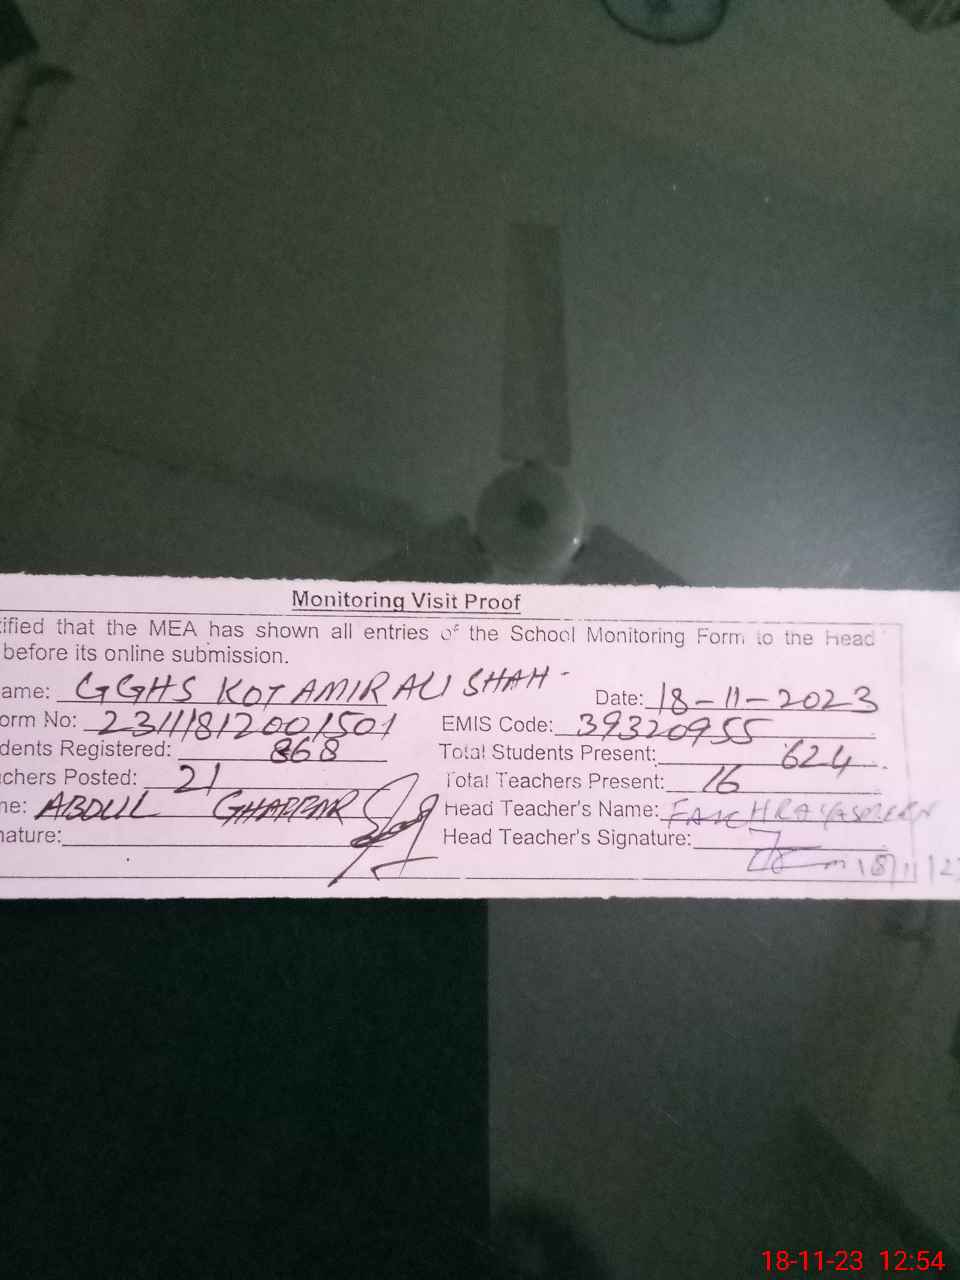 Monitoring Visit Proof
ified that the MEA has shown all entries of the School Monitoring Form to the Head
before its online submission.
ame: GGHS KOT AMIR ALI SHAH - Date: 18-11-2023
orm No: 23111812001501 EMIS Code: 39320955
dents Registered: 868 Total Students Present: 624
chers Posted: 21 Total Teachers Present: 16
ne: ABDUL GHAFFAR Head Teacher's Name: YASMEEN
nature: Head Teacher's Signature:
18/11/23
18-11-23 12:54